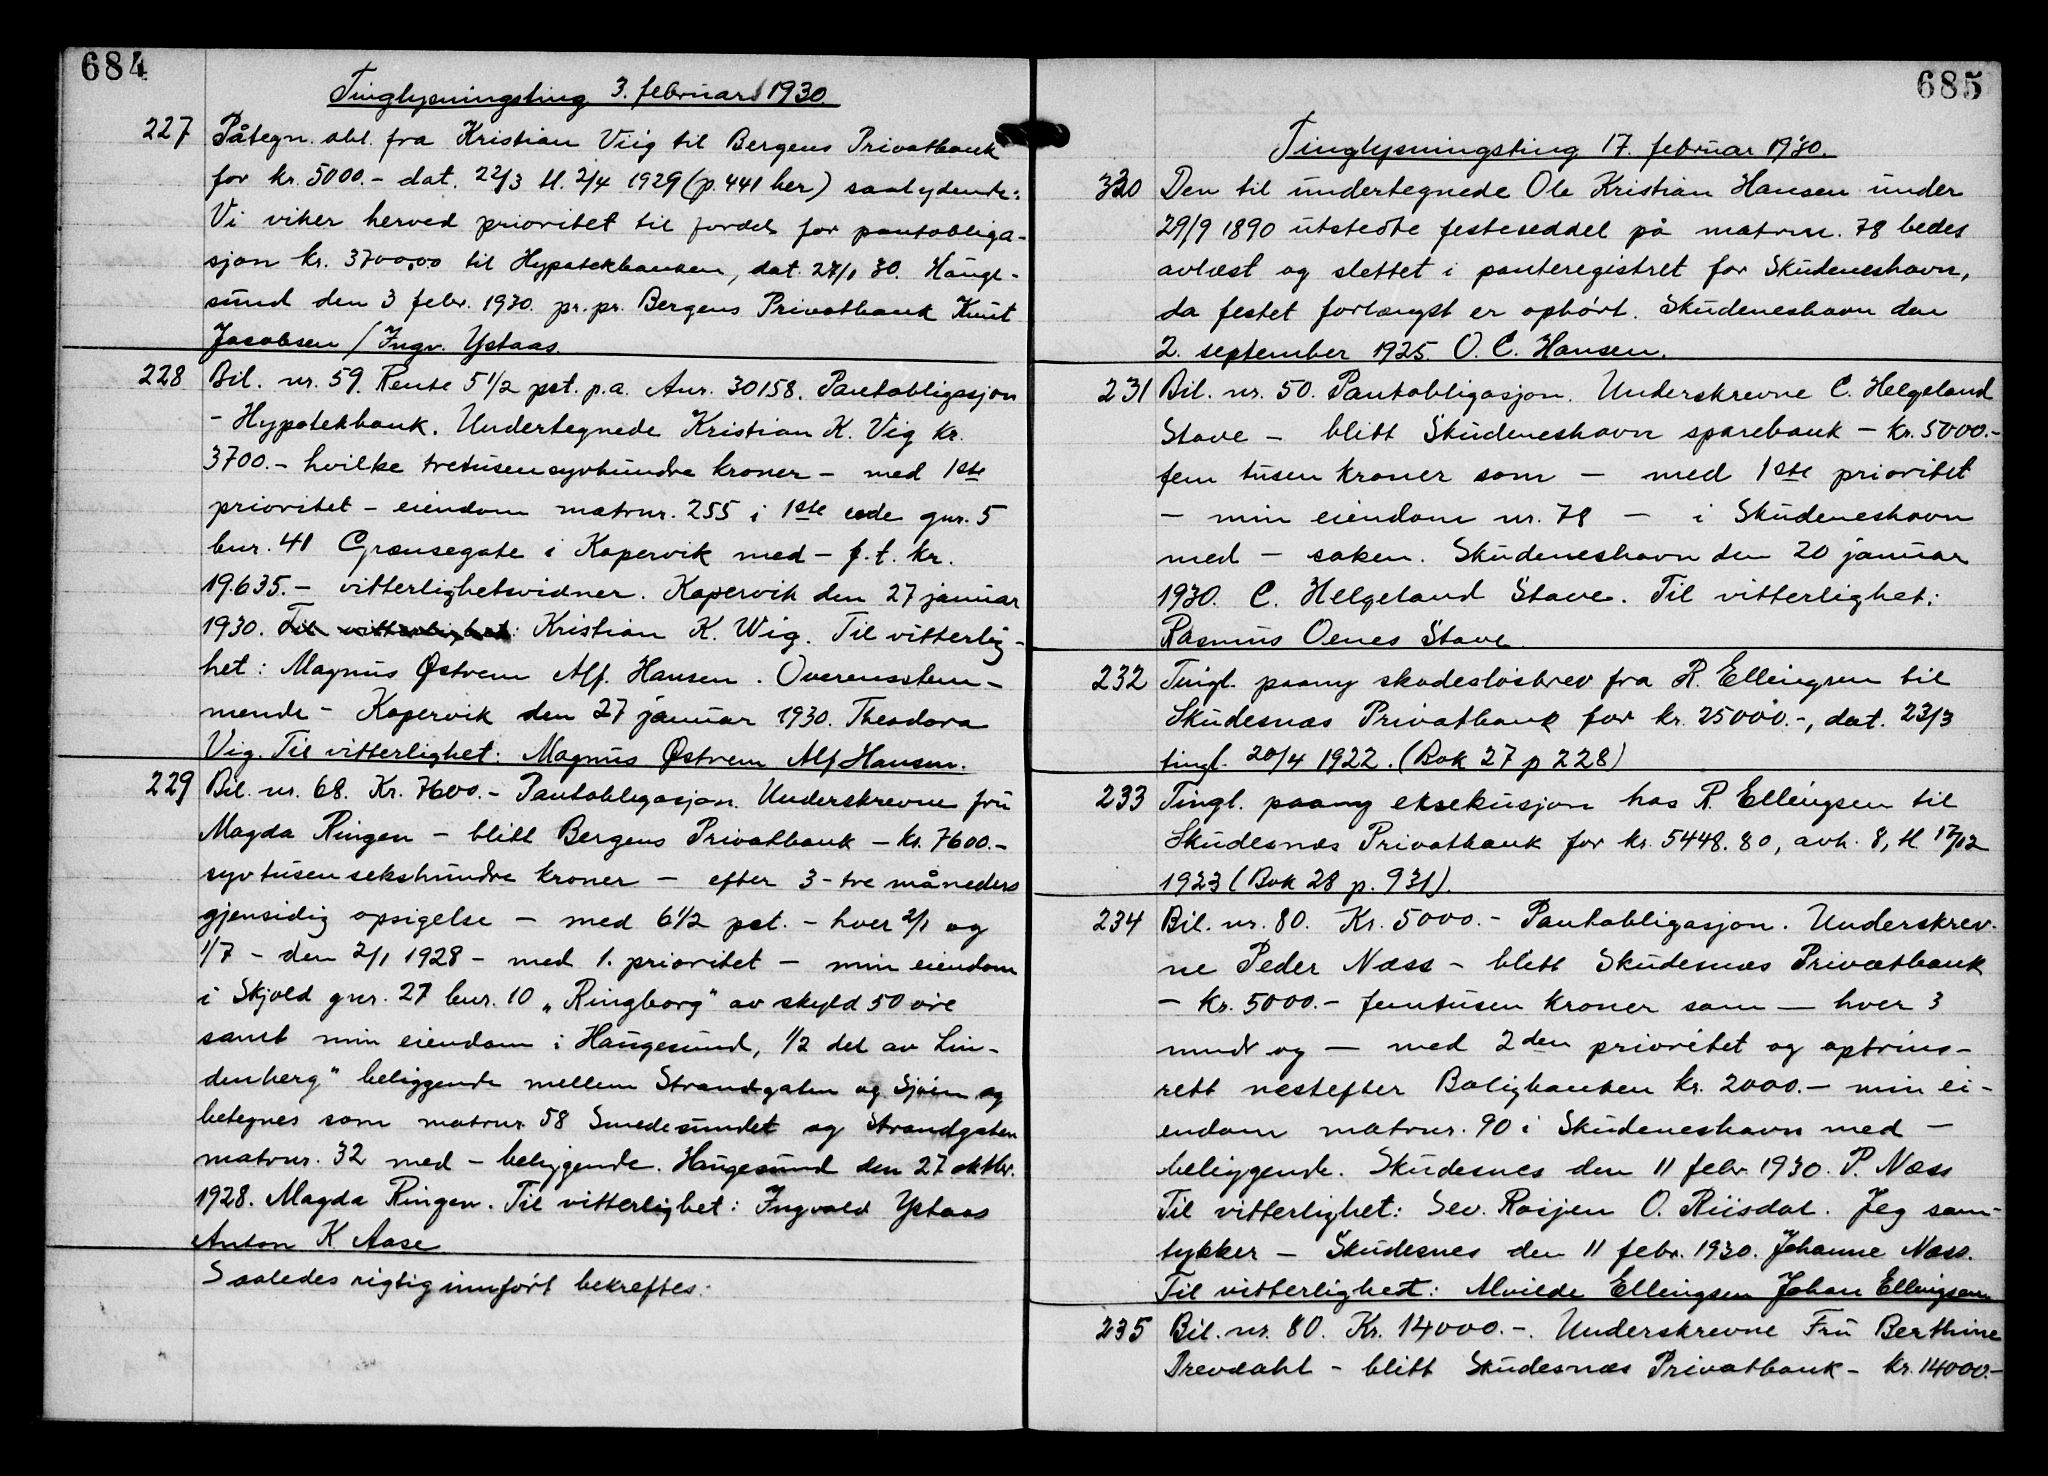 684
Tinglysningsting 3. februar 1930.
227 Påtegn. obl. fra Kristian Viig til Bergens Privatbank
for kr. 5000.- dat. 22/3 tl. 2/4 1929 (p. 441 her) saalydende:
Vi viker herved prioritet til fordel for pantobliga-
sjon kr. 3700,00 til Hypotekbanken, dat. 27/1 30. Hauge-
sund den 3 febr. 1930. pr. pr. Bergens Privatbank Knut
Jacobsen / Ingv. Ystaas.
228 Bil. nr. 59. Rente 5 1/2 pct. p.a. Anr. 30158. Pantobligasjon
- Hypotekbank. Undertegnede Kristian K. Vig kr.
3700.- hvilke tretusensyvhundre kroner - med 1ste
prioritet - eiendom matrnr. 255 i 1ste rode gnr. 5
bnr. 41 Grensegate i Kopervik med - f.t. kr.
19.635.- vitterlighetsvidner. Kopervik den 27 januar
1930. Til vitterlighet: Kristian K. Wig. Til vitterlig-
het: Magnus Østrem Alf. Hansen. Overensstem-
mende - Kopervik den 27 januar 1930. Theodora
Vig. Til vitterlighet: Magnus Østrem Alf Hansen.
229 Bil. nr. 68. Kr. 7600.- Pantobligasjon. Underskrevne fru
Magda Ringen - blitt Bergens Privatbank - kr. 7600.-
syvtusensekshundre kroner - efter 3 - tre måneders
gjensidig opsigelse - med 6 1/2 pct. - hver 2/1 og
1/7 - den 2/1 1928 - med 1. prioritet - min eiendom
i Skjold gnr. 27 bnr. 10 „Ringborg" av skyld 50 øre
samt min eiendom i Haugesund, 1/2 del av Lin-
denberg" beliggende mellem Strandgaten og Sjøen og
betegnes som matrnr. 58 Smedesundet og Strandgaten
matrnr. 32 med - beliggende. Haugesund den 27 oktbr.
1928. Magda Ringen. Til vitterlighet: Ingvald Ystaas
Anton K Aase
Saaledes rigtig innført bekreftes.
685
Tinglysningsting 17. februar 1930.
330 Den til undertegnede Ole Kristian Hansen under
29/9 1890 utstedte festeseddel på matrnr. 78 bedes
avlæst og slettet i panteregistret for Skudeneshavn,
da festet forlængst er ophørt. Skudeneshavn den
2. september 1925. O. C. Hansen.
231 Bil. nr. 50. Pantobligasjon. Underskrevne C. Helgeland
Stave - blitt Skudeneshavn sparebank - kr. 5000.-
fem tusen kroner som - med 1ste prioritet
- min eiendom nr. 78 - i Skudeneshavn
med - saken. Skudeneshavn den 20 januar
1930. C. Helgeland Stave. Til vitterlighet:
Rasmus Oenes Stave.
232 Tingl. paany skadesløsbrev fra R. Ellingsen til
Skudesnæs Privatbank for kr. 25000.-, dat. 23/3
tingl. 20/4 1922. (Bok 27 p 228)
233 Tingl. paany eksekusjon hos R. Ellingsen til
Skudesnæs Privatbank for kr. 5448.80, avh. 8, tl 17/12
1923 (Bok 28 p. 931).
234 Bil. nr. 80. Kr. 5000.- Pantobligasjon. Underskrev-
ne Peder Næss - blitt Skudesnæs Privatbank
- kr. 5000.- femtusen kroner som - hver 3
mndr og - med 2den prioritet og optrins-
rett nestefter Boligbanken kr. 2000.- min ei-
endom matrnr. 90 i Skudeneshavn med -
beliggende. Skudesnes den 11 febr. 1930. P. Næss
Til vitterlighet: Sev. Roijen O. Riisdal. Jeg sam-
tykker - Skudesnes den 11 febr. 1930. Johanne Næss.
Til vitterlighet: Alvilde Ellingsen Johan Ellingsen
235 Bil. nr. 80. Kr. 14000.-. Underskrevne Fru Berthine
Drevdahl - blitt Skudesnæs Privatbank - kr. 14000.-